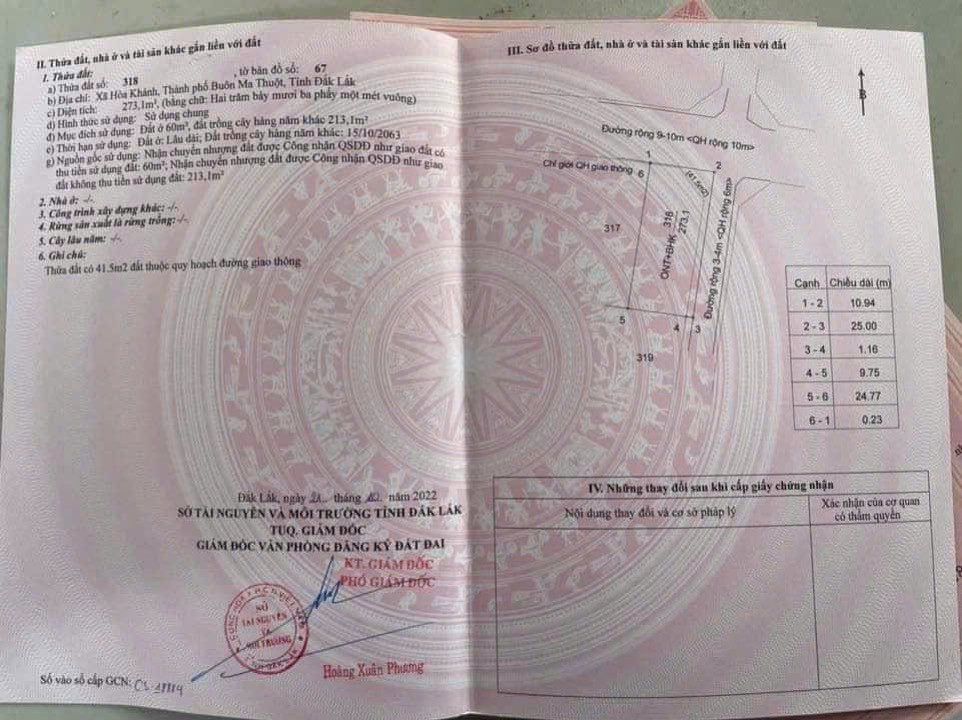 II. Thửa đất, nhà ở và tài sản khác gắn liền với đất
1. Thửa đất:
a) Thửa đất số: 318 , tờ bản đồ số: 67
b) Địa chỉ: Xã Hòa Khánh, Thành phố Buôn Ma Thuột, Tỉnh Đắk Lắk
c) Diện tích: 273,1m², (bằng chữ: Hai trăm bảy mươi ba phẩy một mét vuông)
d) Hình thức sử dụng: Sử dụng chung
đ) Mục đích sử dụng: Đất ở 60m², đất trồng cây hàng năm khác 213,1m²
e) Thời hạn sử dụng: Đất ở: Lâu dài; Đất trồng cây hàng năm khác: 15/10/2063
g) Nguồn gốc sử dụng: Nhận chuyển nhượng đất được Công nhận QSDĐ như giao đất có
thu tiền sử dụng đất: 60m²; Nhận chuyển nhượng đất được Công nhận QSDĐ như giao
đất không thu tiền sử dụng đất: 213,1m²
2. Nhà ở: -/-.
3. Công trình xây dựng khác: -/-.
4. Rừng sản xuất là rừng trồng: -/-.
5. Cây lâu năm: -/-.
6. Ghi chú:
Thửa đất có 41.5m2 đất thuộc quy hoạch đường giao thông
Đắk Lắk, ngày tháng năm 2022
SỞ TÀI NGUYÊN VÀ MÔI TRƯỜNG TỈNH ĐẮK LẮK
TUQ. GIÁM ĐỐC
GIÁM ĐỐC VĂN PHÒNG ĐĂNG KÝ ĐẤT ĐAI
KT. GIÁM ĐỐC
PHÓ GIÁM ĐỐC
SỞ
TÀI NGUYÊN
VÀ
MÔI TRƯỜNG
Hoàng Xuân Phương
Số vào sổ cấp GCN: CS
III. Sơ đồ thửa đất, nhà ở và tài sản khác gắn liền với đất
B
Đường rộng 9-10m <QH rộng 10m>
Chỉ giới QH giao thông 6
1
2
(41.5m2)
317
ONT+BHK 318
273,1
Đường rộng 3-4m <QH rộng 6m>
5
4
3
319
Cạnh Chiều dài (m)
1 - 2 10.94
2 - 3 25.00
3 - 4 1.16
4 - 5 9.75
5 - 6 24.77
6 - 1 0.23
IV. Những thay đổi sau khi cấp giấy chứng nhận
Nội dung thay đổi và cơ sở pháp lý
Xác nhận của cơ quan
có thẩm quyền